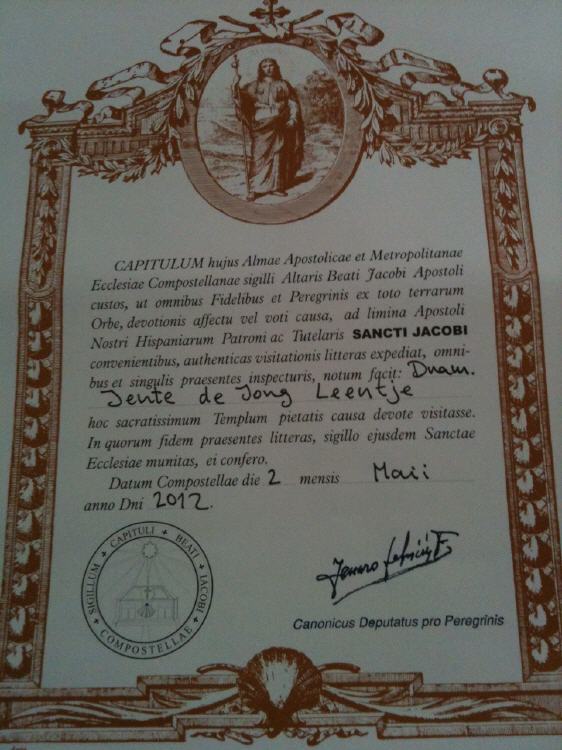 CAPITULUM hujus Almae Apostolicae et Metropolitanae
Ecclesiae Compostellanae sigilli Altaris Beati Jacobi Apostoli
custos, ut omnibus Fidelibus et Peregrinis ex toto terrarum
Orbe, devotionis affectu vel voti causa, ad limina Apostoli
Nostri Hispaniarum Patroni ac Tutelaris SANCTI JACOBI
convenientibus, authenticas visitationis litteras expediat, omni-
bus et singulis praesentes inspecturis, notum facit: Dnam.
Jente de Jong Leentje
hoc sacratissimum Templum pietatis causa devote visitasse.
In quorum fidem praesentes litteras, sigillo ejusdem Sanctae
Ecclesiae munitas, ei confero.
Datum Compostellae die 2 mensis Maii
anno Dni 2012.
SIGILLUM CAPITULI BEATI JACOBI COMPOSTELLAE
Canonicus Deputatus pro Peregrinis